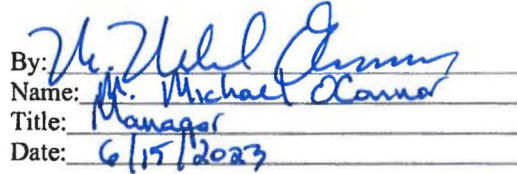 By: M. Michael OConnor
Name: M. Michael OConnor
Title: Manager
Date: 6/15/2023